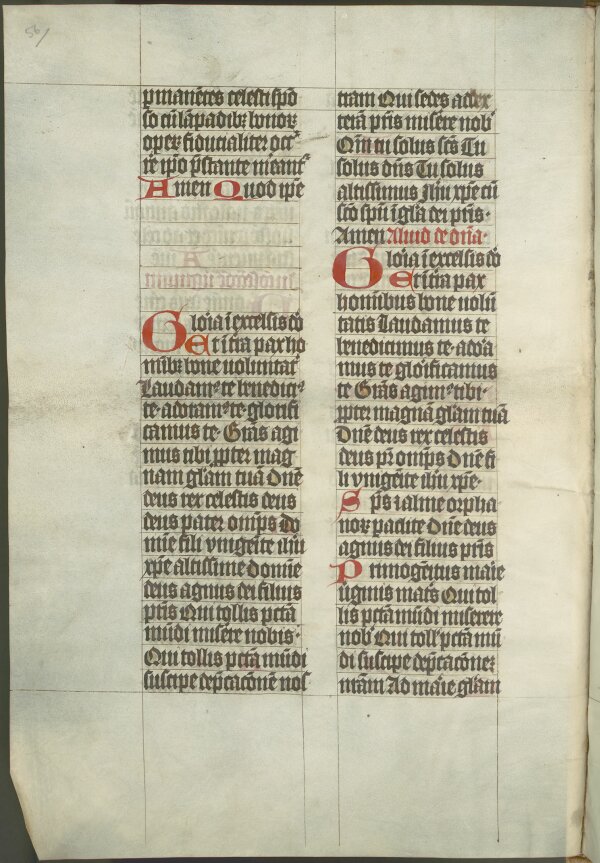 56/
p̄manētes celesti spō
so cū lāpadibꝫ bonoꝝ
operꝫ fiducialiter occr̄
re ip̄o p̄stante meant᷑
Amen Quod ip̄e
Gloīa ī excelsis dō
Et ī t̄ra pax ho
mībꝫ bone voluntat᷑
Laudam᷒ te benedici᷒
te adoram᷒ te glorifi
camus te Grās agi
mus tibi ꝓpter mag
nam glām tuā Dn̄e
deus rex celestis deus
deus pater om̄ps Do
mīe fili vnigēite ih̄u
xp̄e altissime domīe
deus agnus dei filius
pr̄is Qui tollis pctā
mūdi misere nobis·
Qui tollis pctā mūdi
suscipe dep̄cacōnē nos
tram Qui sedes ad dex
terā pr̄is misere nob᷑
Qm̄ tu solus sc̄s Tu
solus dn̄s Tu solus
altissimus Ih̄u xp̄e cū
sc̄o sp̄u ī gl̄a dei pr̄is·
Amen Aliud de dn̄a·
Gloīa ī excelsis dō
Et ī t̄ra pax
hominibus bone volū
tatis Laudamus te
benedicimus te adōa
mus te glorificamus
te Grās agim᷒ tibi·
ꝓpter magnā glam tuā
Dn̄e deus rex celestis
deus pr̄ om̄ps Dn̄e fi
li vnigēite ih̄u xp̄e·
Sp̄s ⁊ alme orpha
noꝝ paclite Dn̄e deus
agnus dei filius pr̄is
Primogēitus marie
v̄ginis mat̄s Qui tol
lis pctā mūdi miserere
nob᷑ Qui toll᷑ pctā mū
di suscipe dep̄cacōneꝫ
nrā̄m Ad marie glām